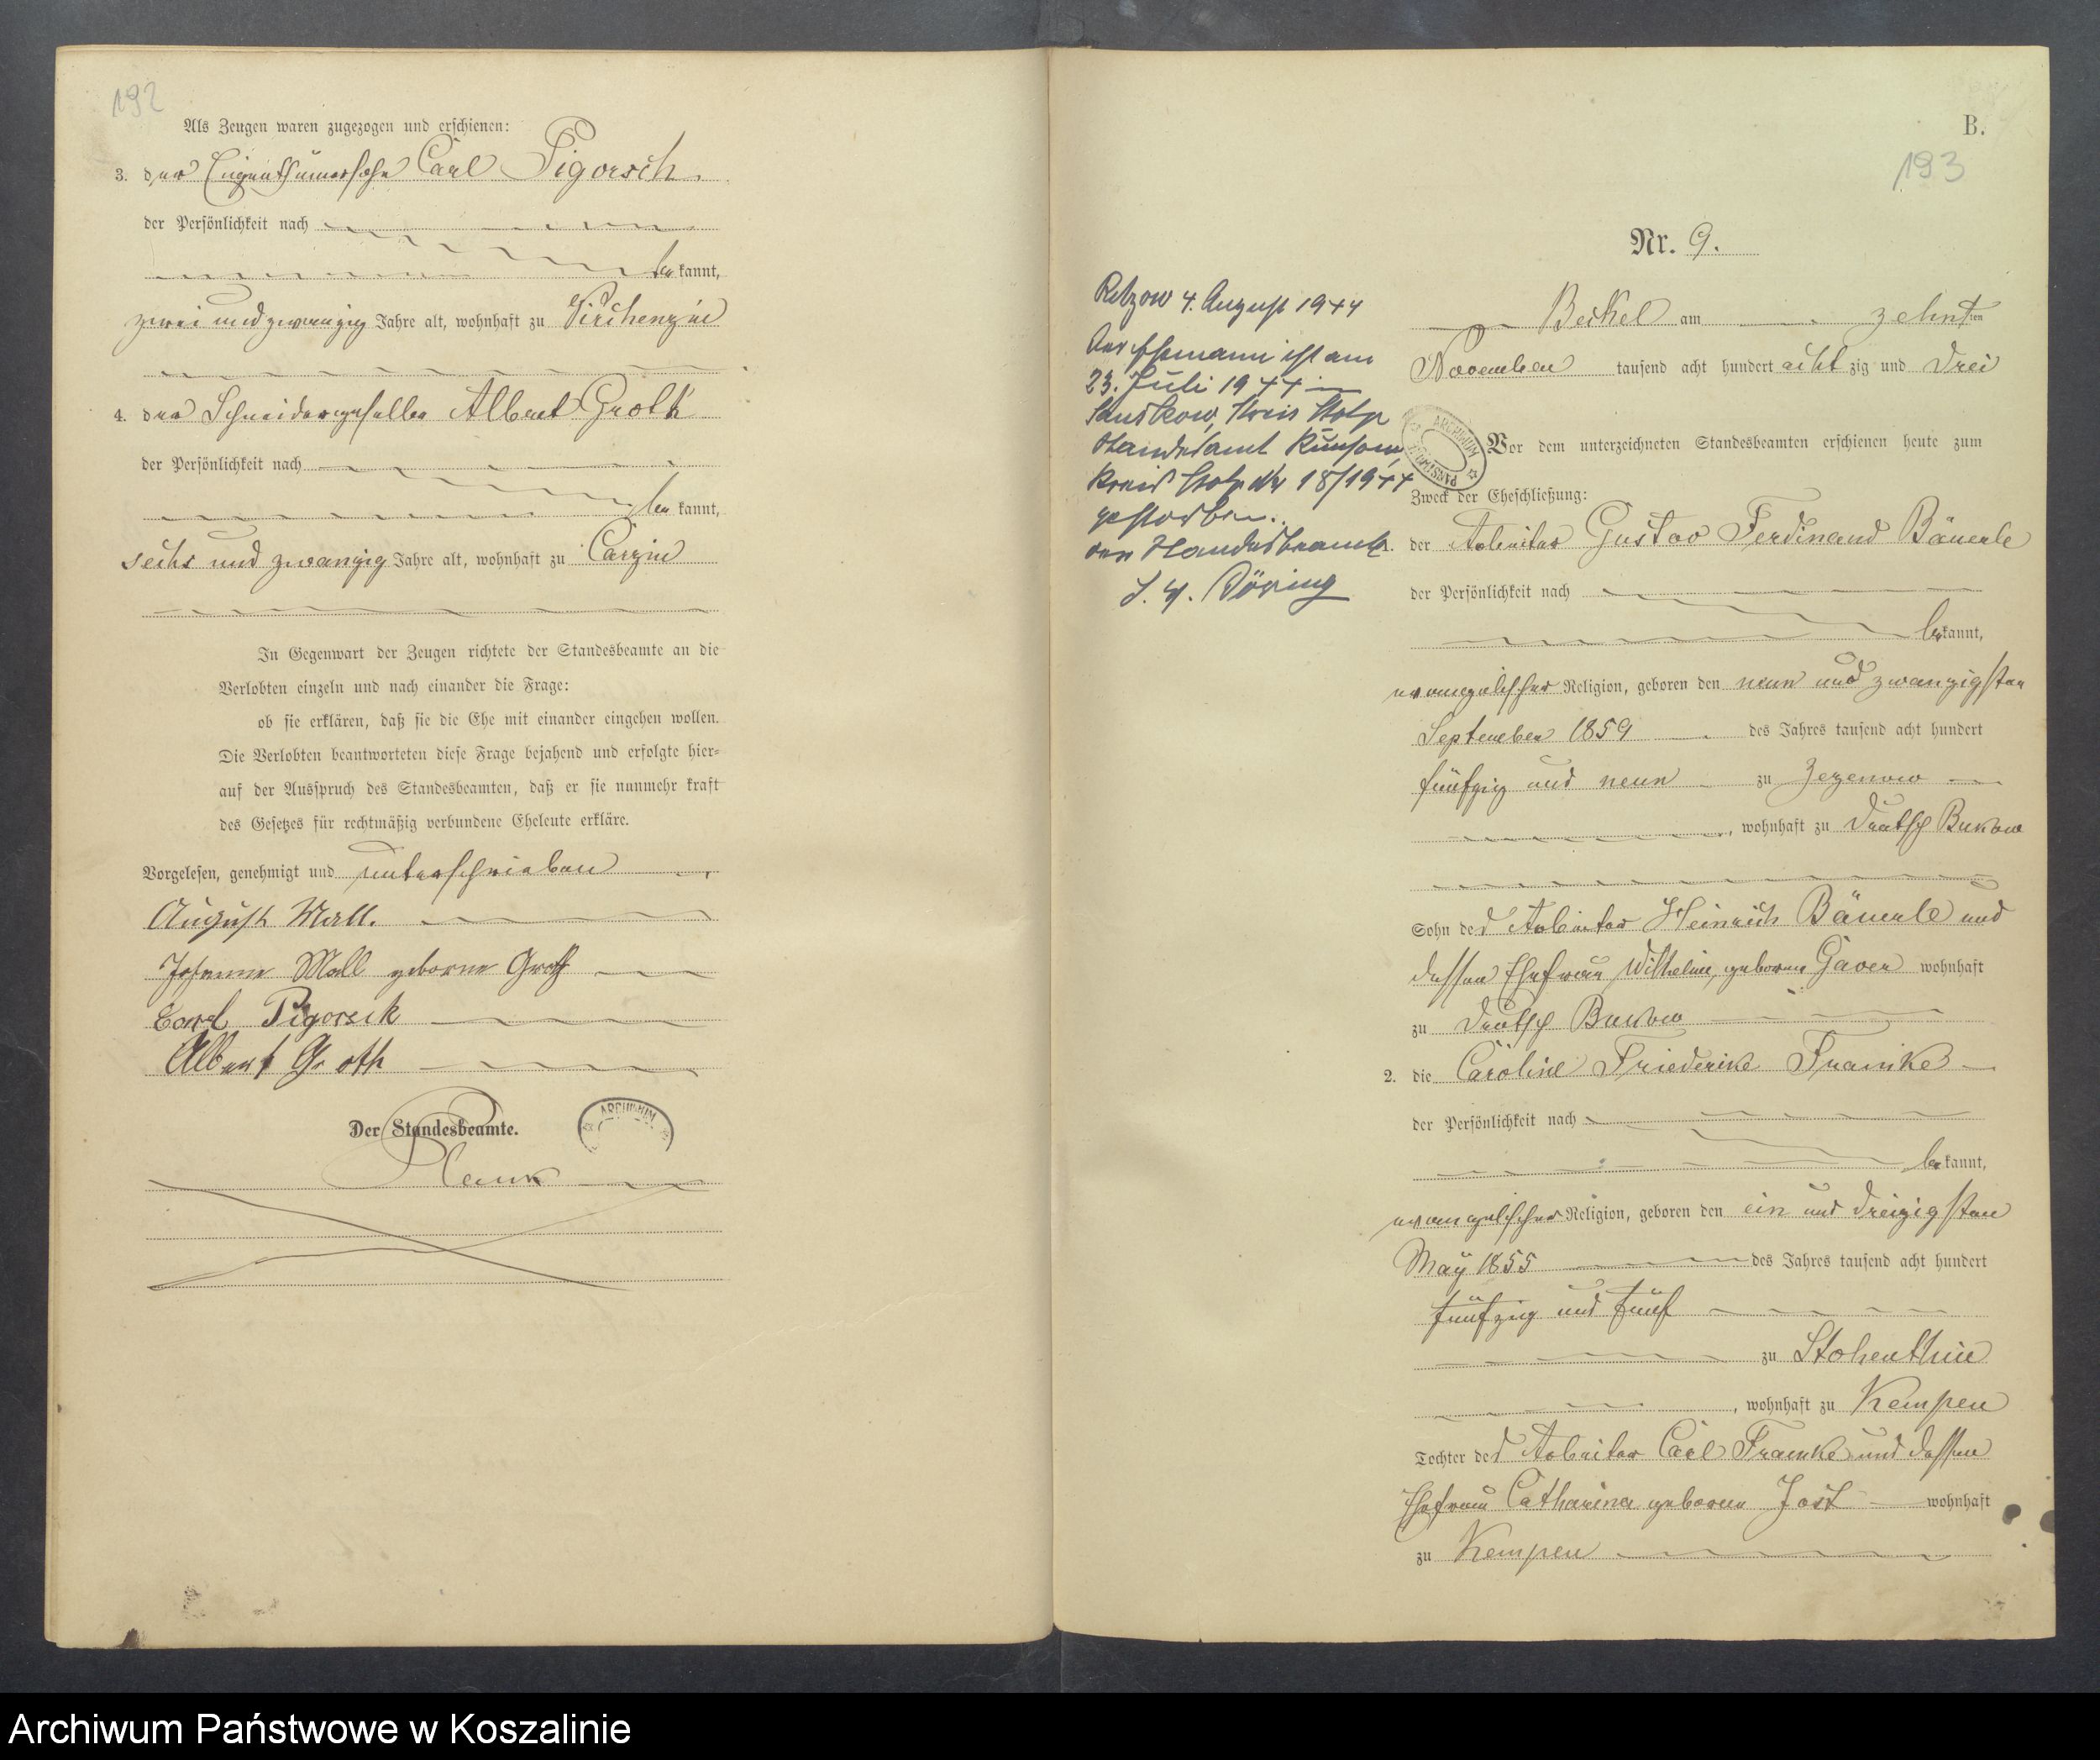 192
Als Zeugen waren zugezogen und erschienen:
3. der Eigenthümersohn Carl Pigorsch
der Persönlichkeit nach
be kannt,
zwei und zwanzig Jahre alt, wohnhaft zu Virchenzin
4. der Schneidergeselle Albert Groth
der Persönlichkeit nach
be kannt,
sechs und zwanzig Jahre alt, wohnhaft zu Carzin
In Gegenwart der Zeugen richtete der Standesbeamte an die
Verlobten einzeln und nach einander die Frage:
ob sie erklären, daß sie die Ehe mit einander eingehen wollen.
Die Verlobten beantworteten diese Frage bejahend und erfolgte hier-
auf der Ausspruch des Standesbeamten, daß er sie nunmehr kraft
des Gesetzes für rechtmäßig verbundene Eheleute erkläre.
Vorgelesen, genehmigt und unterschrieben
August Mall.
Johanne Mall geborne Groth
Carl Pigorsch
Albert Groth
Der Standesbeamte.
ARCHIWUM
B.
193
Nr. 9.
Beckel am zehnten
November tausend acht hundert acht zig und drei
ARCHIWUM PAŃSTWOWE
Vor dem unterzeichneten Standesbeamten erschienen heute zum
Zweck der Eheschließung:
der Arbeiter Gustav Ferdinand Bäuerle
der Persönlichkeit nach
be kannt,
evangelischer Religion, geboren den neun und zwanzigsten
September 1859 des Jahres tausend acht hundert
fünfzig und neun zu Zezenow
, wohnhaft zu Deutsch Bukow
Sohn des Arbeiter Heinrich Bäuerle und
dessen Ehefrau Wilhelmine, geborne wohnhaft
zu Deutsch Bukow
2. die Caroline Friederike Framke
der Persönlichkeit nach
be kannt,
evangelischer Religion, geboren den ein und dreizigsten
May 1855 des Jahres tausend acht hundert
fünfzig und fünf
zu Stohenthin
, wohnhaft zu Kempen
Tochter des Arbeiter Carl Framke und dessen
Ehefrau Catharina geborne Jost wohnhaft
zu Kempen
Retzow 4. August 1944
Der Ehemann ist am
23. Juli 1944 in
Sanskow, Kreis Stolp
Standesamt Rumsow
Kreis Stolp Nr 18/1944
gestorben.
Der Standesbeamte.
J. V. Döring
Archiwum Państwowe w Koszalinie